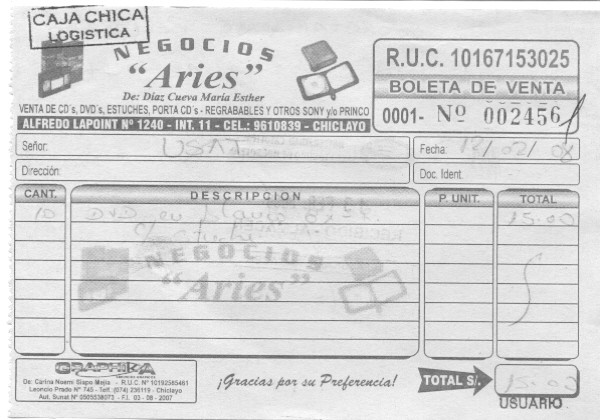 CAJA CHICA
LOGISTICA
NEGOCIOS
"Aries"
De: Díaz Cueva María Esther
VENTA DE CD's, DVD's, ESTUCHES, PORTA CD's - REGRABABLES Y OTROS SONY y/o PRINCO
ALFREDO LAPOINT Nº 1240 - INT. 11 - CEL.: 9610839 - CHICLAYO
R.U.C. 10167153025
BOLETA DE VENTA
0001- Nº 002456
Señor: USAT
Fecha: 12/02/08
Dirección:
Doc. Ident.
CANT. DESCRIPCION P. UNIT. TOTAL
10 DVD en blanco 15.00
c/estuche
NEGOCIOS
"Aries"
GRAPHIKA
De: Carina Noemi Siapo Mejía - R.U.C. Nº 10192565461
Leoncio Prado Nº 745 - Telf. (074) 236119 - Chiclayo
Aut. Sunat Nº 0505538073 - F.I. 03 - 08 - 2007
¡Gracias por su Preferencia!
TOTAL S/. 15.00
USUARIO